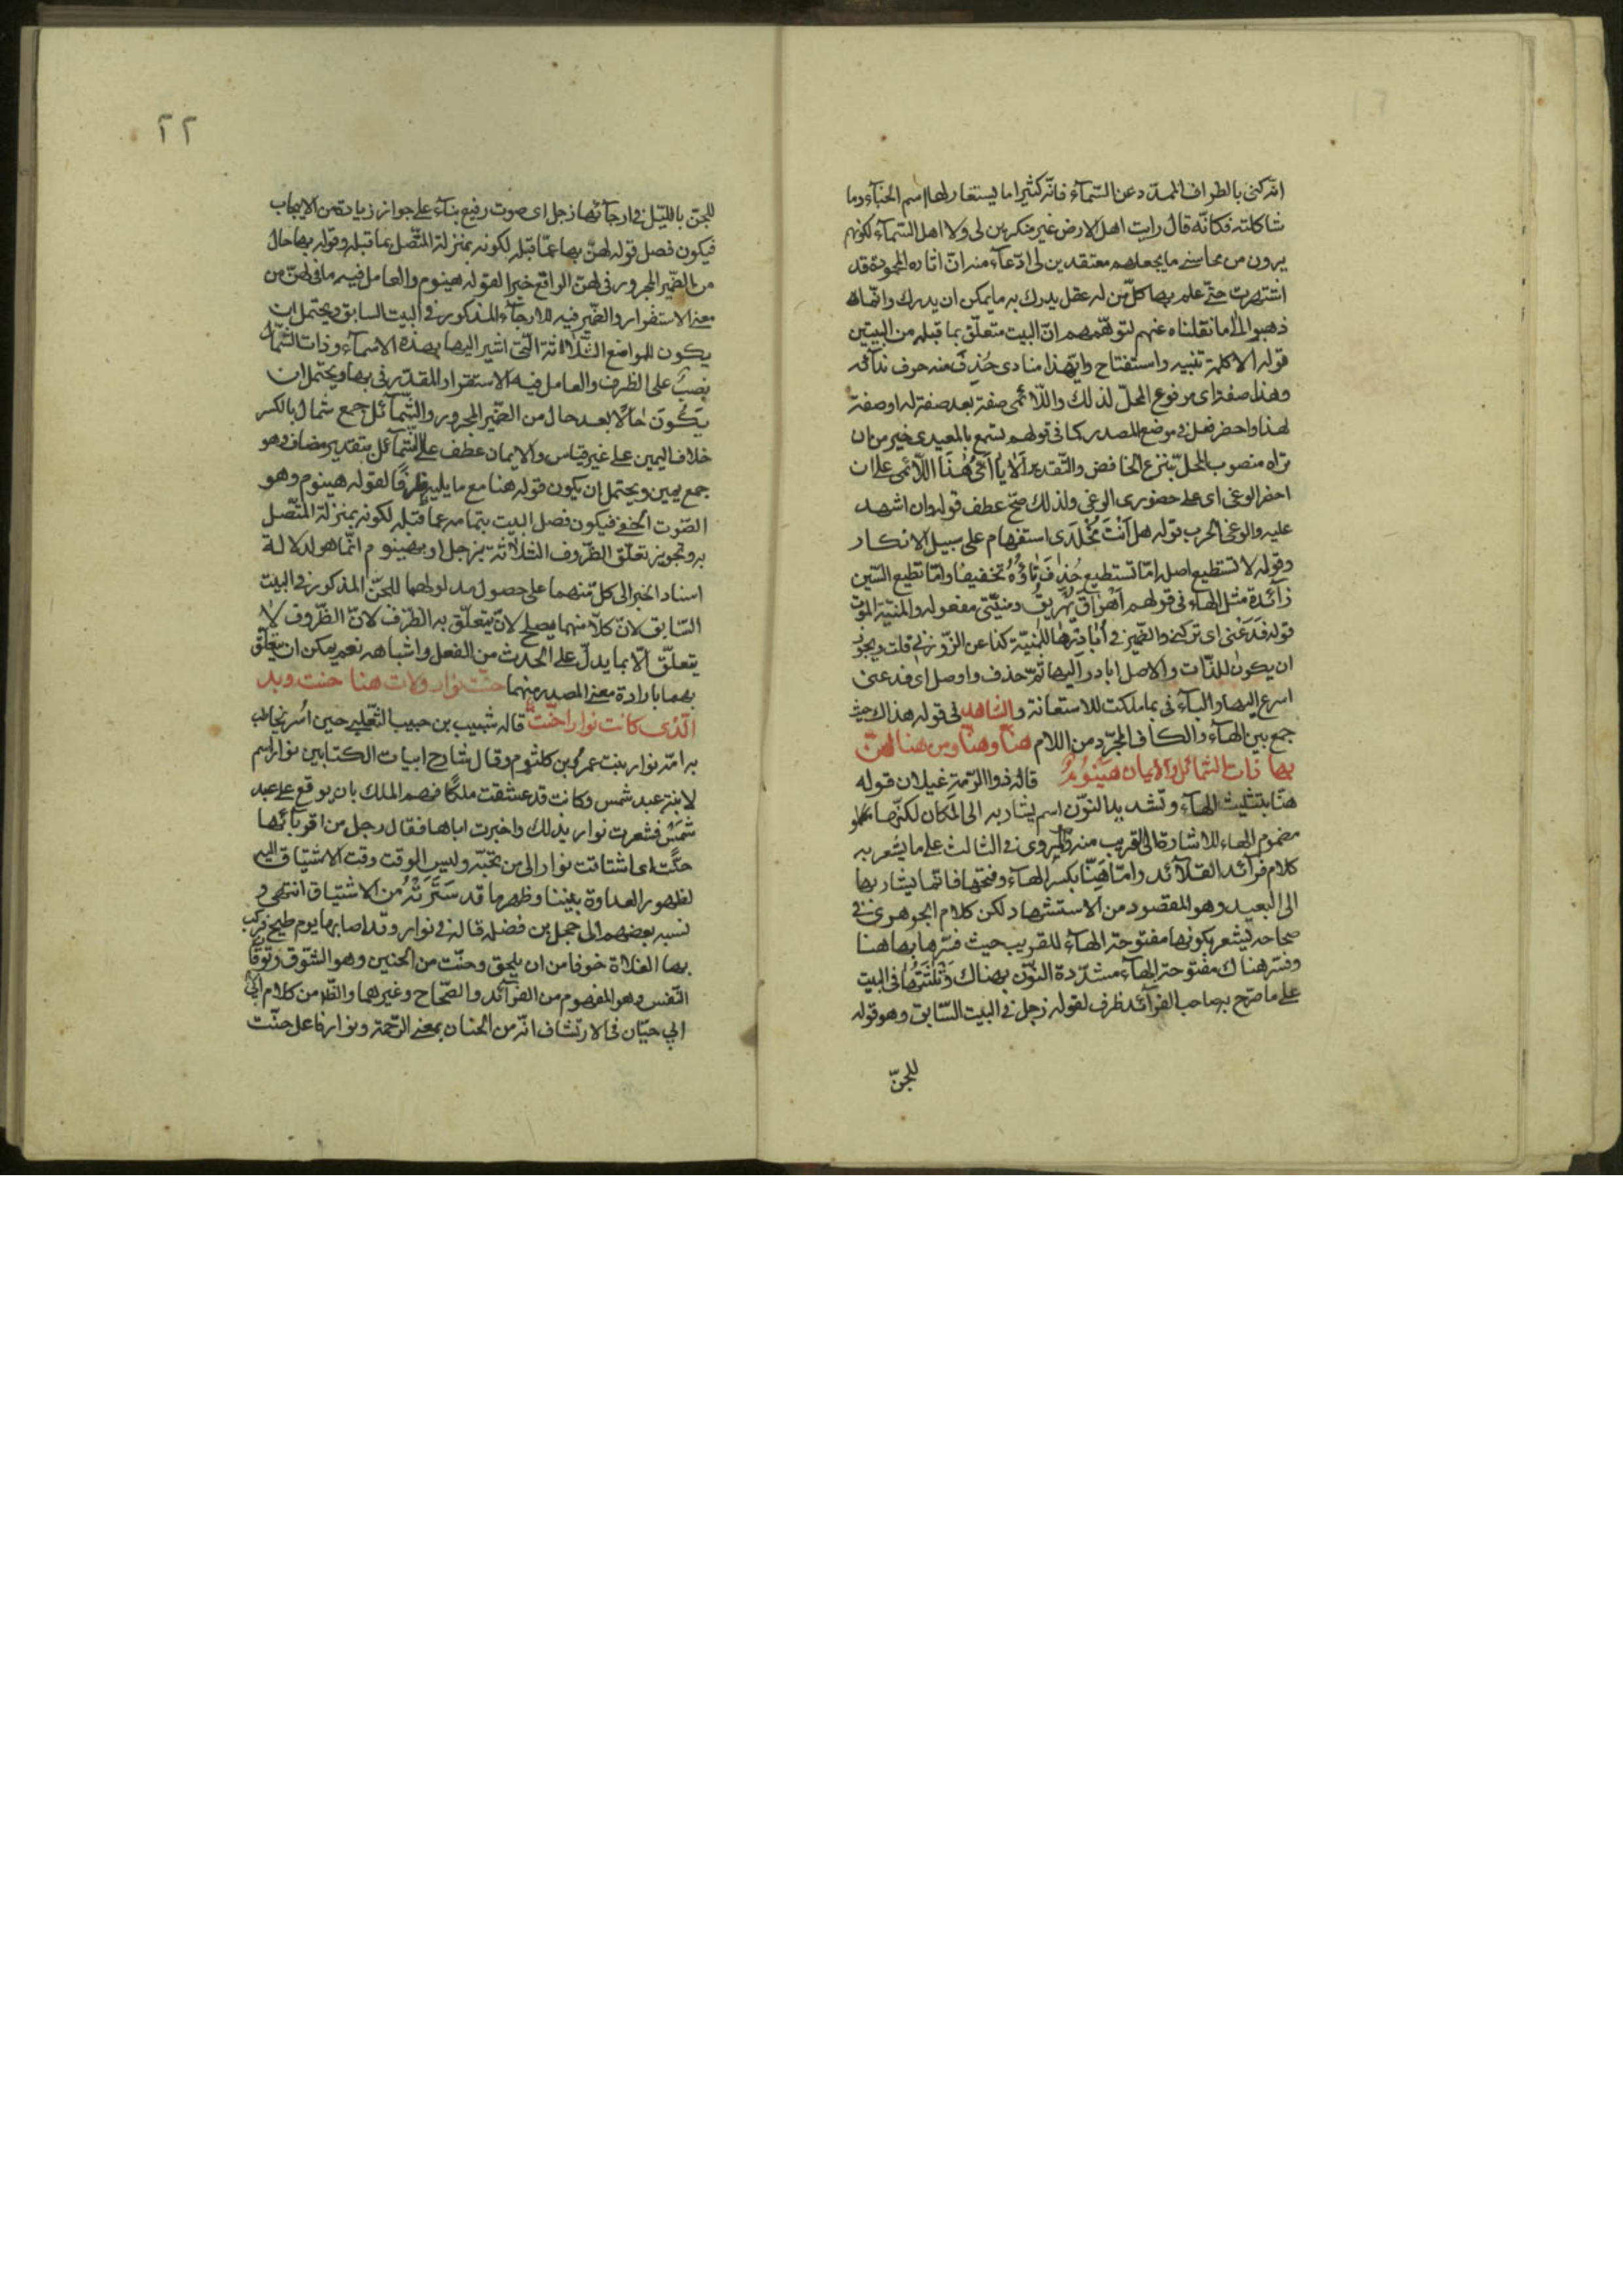 انّه كنى بالطراف الممدّد عن السّمآء فانّه كثيرا ما يستعار لها اسم الخبآء وما
شاكلته فكانّه قال رايت اهل الارض غير منكرين لى ولا اهل السّمآء لكونهم
يرون من محاسنى ما يجعلهم معتقدين لى ادّعآء منه انّ اثاره المحمودة قد
اشتهرت حتّى علم بها كلّ من له عقل يدرك به ما يمكن ان يدرك وانّما
ذهبوا الى ما نقلناه عنهم لتوهّمهم انّ البيت متعلّق بما قبله من البيتين
قوله الا كلمة تنبيه واستفتاح وايّهذا منادى حُذِفَ منه حرف ندآئه
وهذا صفة اى مرفوع المحلّ لذلك واللّائمى صفة بعد صفة له او صفة
لهذا واحضر فعل فى موضع المصدر كما فى قولهم تسمع بالمعيدى خير من ان
تراه منصوب المحلّ بنزع الخافض والتّقدير اَلا يا اَىُّ هٰذَا اللّائمى على ان
احضر الوغى اى على حضورى الوغى ولذلك صحّ عطف قوله وان اشهد
عليه والوغى الحرب قوله هل اَنْتَ مُخْلَدى استفهام على سبيل الانكار
وقوله لا تسطيع اصله امّا تستطيع حُذِفَ تاؤُهُ تخفيفًا وامّا تطيع السّين
زآئدة مثل الهاء فى قولهم اَهْرَاقَ يُهْرِيقُ ومنيّتى مفعوله والمنيّة الموت
قوله فَدَعْنى اى تركنى والضّمير فى اُبَادِرْهَا للمنيّة كذا عن الزّوزنى قلت ويجوز
ان يكون للذّات والاصل ابادر اليها ثمّ حذف واوصل اى فدعنى
اسرع اليها والبآء فى بما ملكت للاستعانة والشاهد فى قوله هذاك حيث
جمع بين الهآء والكاف المجرّد من اللام هنّا وهنّا ومن هنّا لهنّ
بها ذات الشّمائل والايمان هَيْنُومُ قاله ذوا الرّمة غيلان قوله
هنّا بتثليث الهآء وتشديد النّون اسم يشار به الى المكان لكنّها
مضموم الهاء للاشارة الى القريب منه والمروى فى الثالث على ما يشعر به
كلام فرآئد القلآئد وامّا هَِنّا بكسر الهآء وفتحها فانّما يشار بها
الى البعيد وهو المقصود من الاستشهاد لكن كلام الجوهرى فى
صحاحه يشعر بكونها مفتوحة الهآء للقريب حيث فسّرها بها هنا
وفسّر هناك مفتوحة الهآء مشدّدة النّون بهناك وَثُلثَتُهَا فى البيت
على ما صرّح به صاحب الفرآئد ظرف لقوله زجل فى البيت السّابق وهو قوله
للجنّ
٢٢
للجنّ بالليل فى ارجآئها زجل اى صوت رفيع بنآء على جواز زيادة من الايجاب
فيكون فصل قوله لهنّ بها عمّا قبله لكونه بمنزلة المتّصل بما قبله وقوله بها حال
من الضّمير المجرور فى لهنّ الواقع خبرا لقوله هينوم والعامل فيه ما فى لهنّ من
معنى الاستقرار والضّمير فيه للارجآء المذكور فى البيت السابق ويحتمل ان
يكون للمواضع الثّلاثة الّتى اشير اليها بهذه الاسمآء وذات الشّمال
نصبٌ على الظرف والعامل فيه الاستقرار المقدّر فى بها ويحتمل ان
يكون حالًا بعد حال من الضّمير المجرور والشّمآئل جمع شمال بالكسر
خلاف اليمين على غير قياس والايمان عطف على الشّمآئل بتقدير مضاف وهو
جمع يمين ويحتمل ان يكون قوله هنا مع ما يليه ظرفًا لقوله هينوم وهو
الصّوت الخفىّ فيكون فصل البيت بتمامه عما قبله لكونه بمنزلة المتّصل
به وتجويز تعلّق الظّروف الثّلاثة بزجل او بهينوم انّما هو لدلالة
اسناد الخبر الى كلّ منهما على حصول مدلولهما للجنّ المذكور فى البيت
السّابق لانّ كلّا منهما يصلح لانّ يتعلّق به الظّرف لانّ الظّروف لا
يتعلّق الّا بما يدلّ على الحدث من الفعل واشباهه نعم يمكن ان يتعلّق
بهما بارادة معنى المصدر منهما حنّت نوار ولات هنا حنت وبد
الّذى كانت نوار اجنّت قاله شبيب بن جعيب التّغلبى حين اُسر يخاطب
به امّه نوار بنت عمرو بن كلثوم وقال شارح ابيات الكتابين نوار اسم
لابنة عبد شمس وكانت قد عشقت ملكًا فهم الملك بان يوقع على عبد
شمس فشعرت نوار بذلك واخبرت اباها فقال رجل من اقربآئها
حنّت اى اشتاقت نوار الى من تحبّه وليس الوقت وقت الاشتياق اليه
لظهور العداوة بيننا وظهر ما قد سَتَرَتْهُ من الاشتياق انتهى و
نسبه بعضهم الى حجل بن فضلة قاله فى نوار وقد اصابها يوم طلح فركب
بها الفلاة خوفا من ان يلحق وحنّت من الحنين وهو الشّوق وتوقا
النّفس وهو المفهوم من الفرآئد والصّحاح وغيرهما والظّ من كلام
ابى حيّان فى الارتشاف انّه من الحنان بمعنى الرّحمة ونوار فاعل حنّت